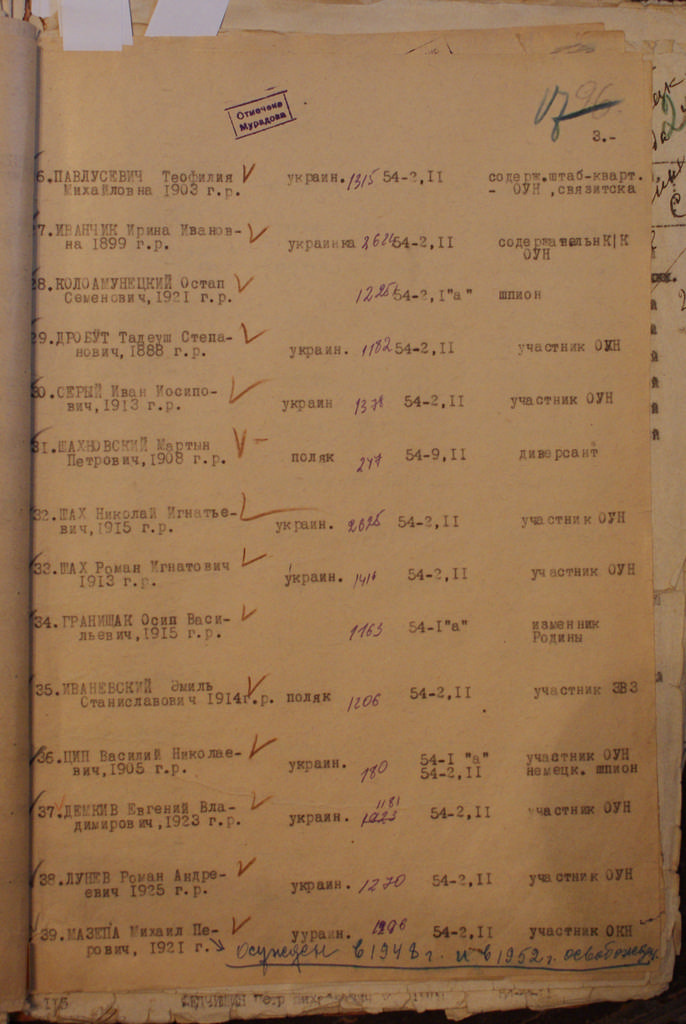 Отмечено
Мурадова
96
3.-
6.ПАВЛУСЕВИЧ Теофилия украин. 1315 54-2,II содерж.штаб-кварт.
Михайловна 1903 г.р. - ОУН ,связитска
7.ИВАНЧИК Ирина Иванов- украинка 2624 54-2,II содержательнК|К
на 1899 г.р. ОУН
28.КОЛОАМУНЕЦКИЙ Остап 1225 54-2,I"а" шпион
Семенович,1921 г.р.
29.ДРОБУТ Тадеуш Степа- украин. 1182 54-2,II участник ОУН
нович,1888 г.р.
30.СЕРЫЙ Иван Иосипо- украин 1378 54-2,II участник ОУН
вич,1913 г.р.
31.ШАХНОВСКИЙ Мартын поляк 247 54-9,II диверсант
Петрович,1908 г.р.
32.ШАХ Николай Игнатье- украин. 2625 54-2,II участник ОУН
вич,1915 г.р.
33.ШАХ Роман Игнатович украин. 54-2,II участник ОУН
1913 г.р.
34.ГРАНИШАК Осип Васи- 1163 54-I"а" изменник
льевич,1915 г.р. Родины
35.ИВАНЕВСКИЙ Эмиль поляк 1206 54-2,II участник ЗВЗ
Станиславович 1914г.р.
36.ЦИП Василий Николае- украин. 180 54-I "а" участник ОУН
вич,1905 г.р. 54-2,II немецк. шпион
37.ДЕМКИВ Евгений Вла- украин. 1181 54-2,II участник ОУН
димирович,1923 г.р.
38.ЛУНЕВ Роман Андре- украин. 1270 54-2,II участник ОУН
евич 1925 г.р.
39.МАЗЕПА Михаил Пе- уураин. 54-2,II участник ОКН
рович, 1921 г. осужден в 1948 г. и в 1952 г. освобожден.
115